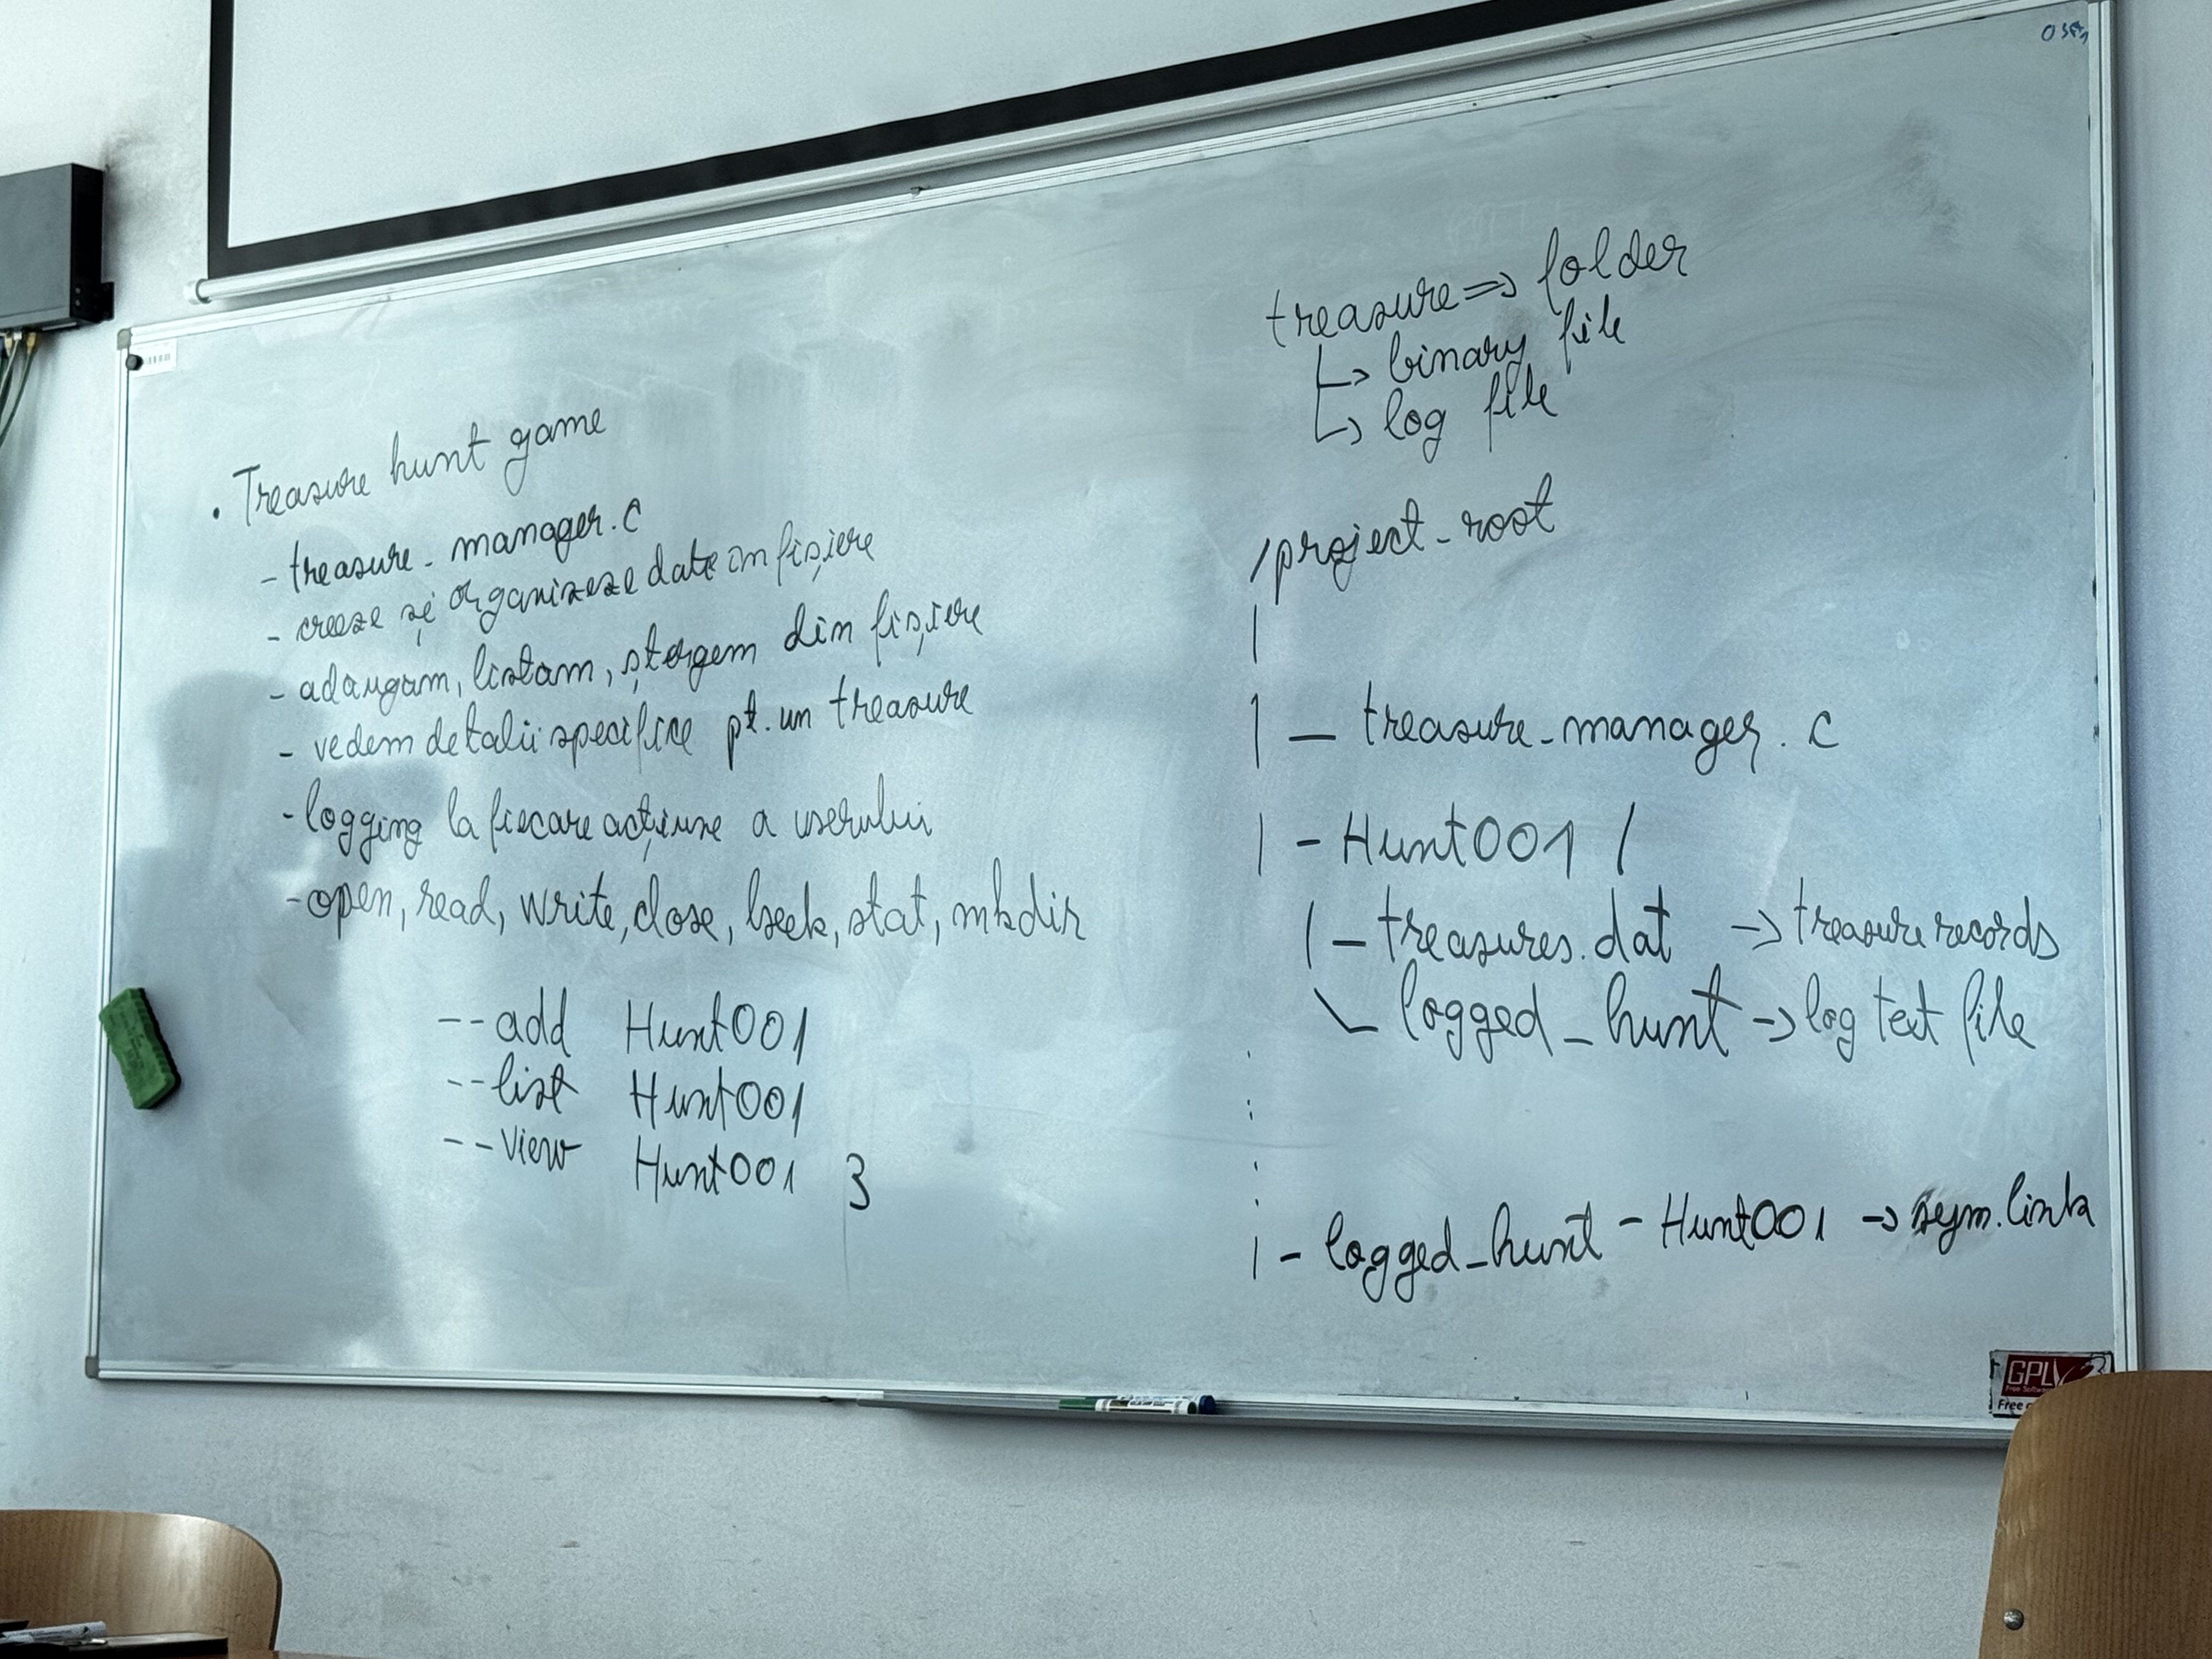 • Treasure hunt game
- treasure_manager.c
- creeze și organizeze date în fișiere
- adaugam, listam, ștergem din fișiere
- vedem detalii specifice pt. un treasure
- logging la fiecare acțiune a userului
- open, read, write, close, lseek, stat, mkdir
--add Hunt001
--list Hunt001
--view Hunt001 3
treasure => folder
↳ binary file
↳ log file
/project_root
|
| — treasure_manager.c
| - Hunt001 /
| - treasures.dat -> treasure records
\ - logged_hunt -> log text file
| - logged_hunt - Hunt001 -> sym.link
GPLv3
Free